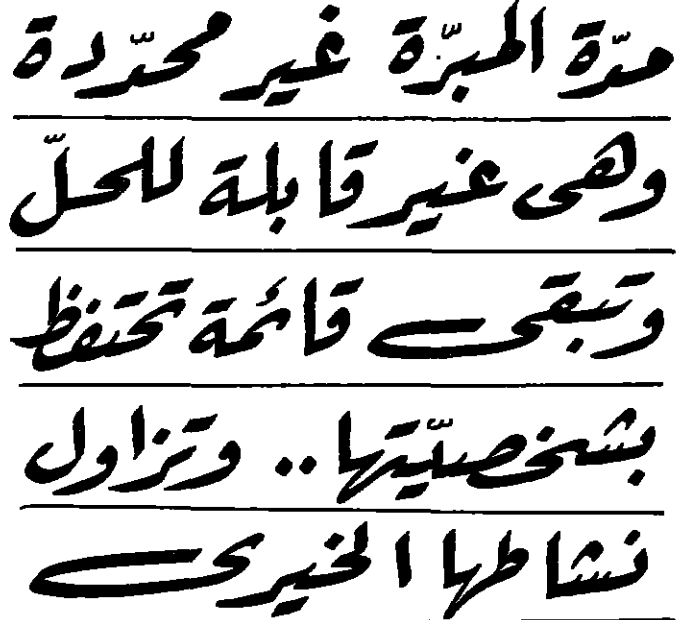 مدّة المبرّة غير محدّدة
وهى غير قابلة للحلّ
وتبقى قائمة تحتفظ
بشخصيّتها .. وتزاول
نشاطها الخيرى